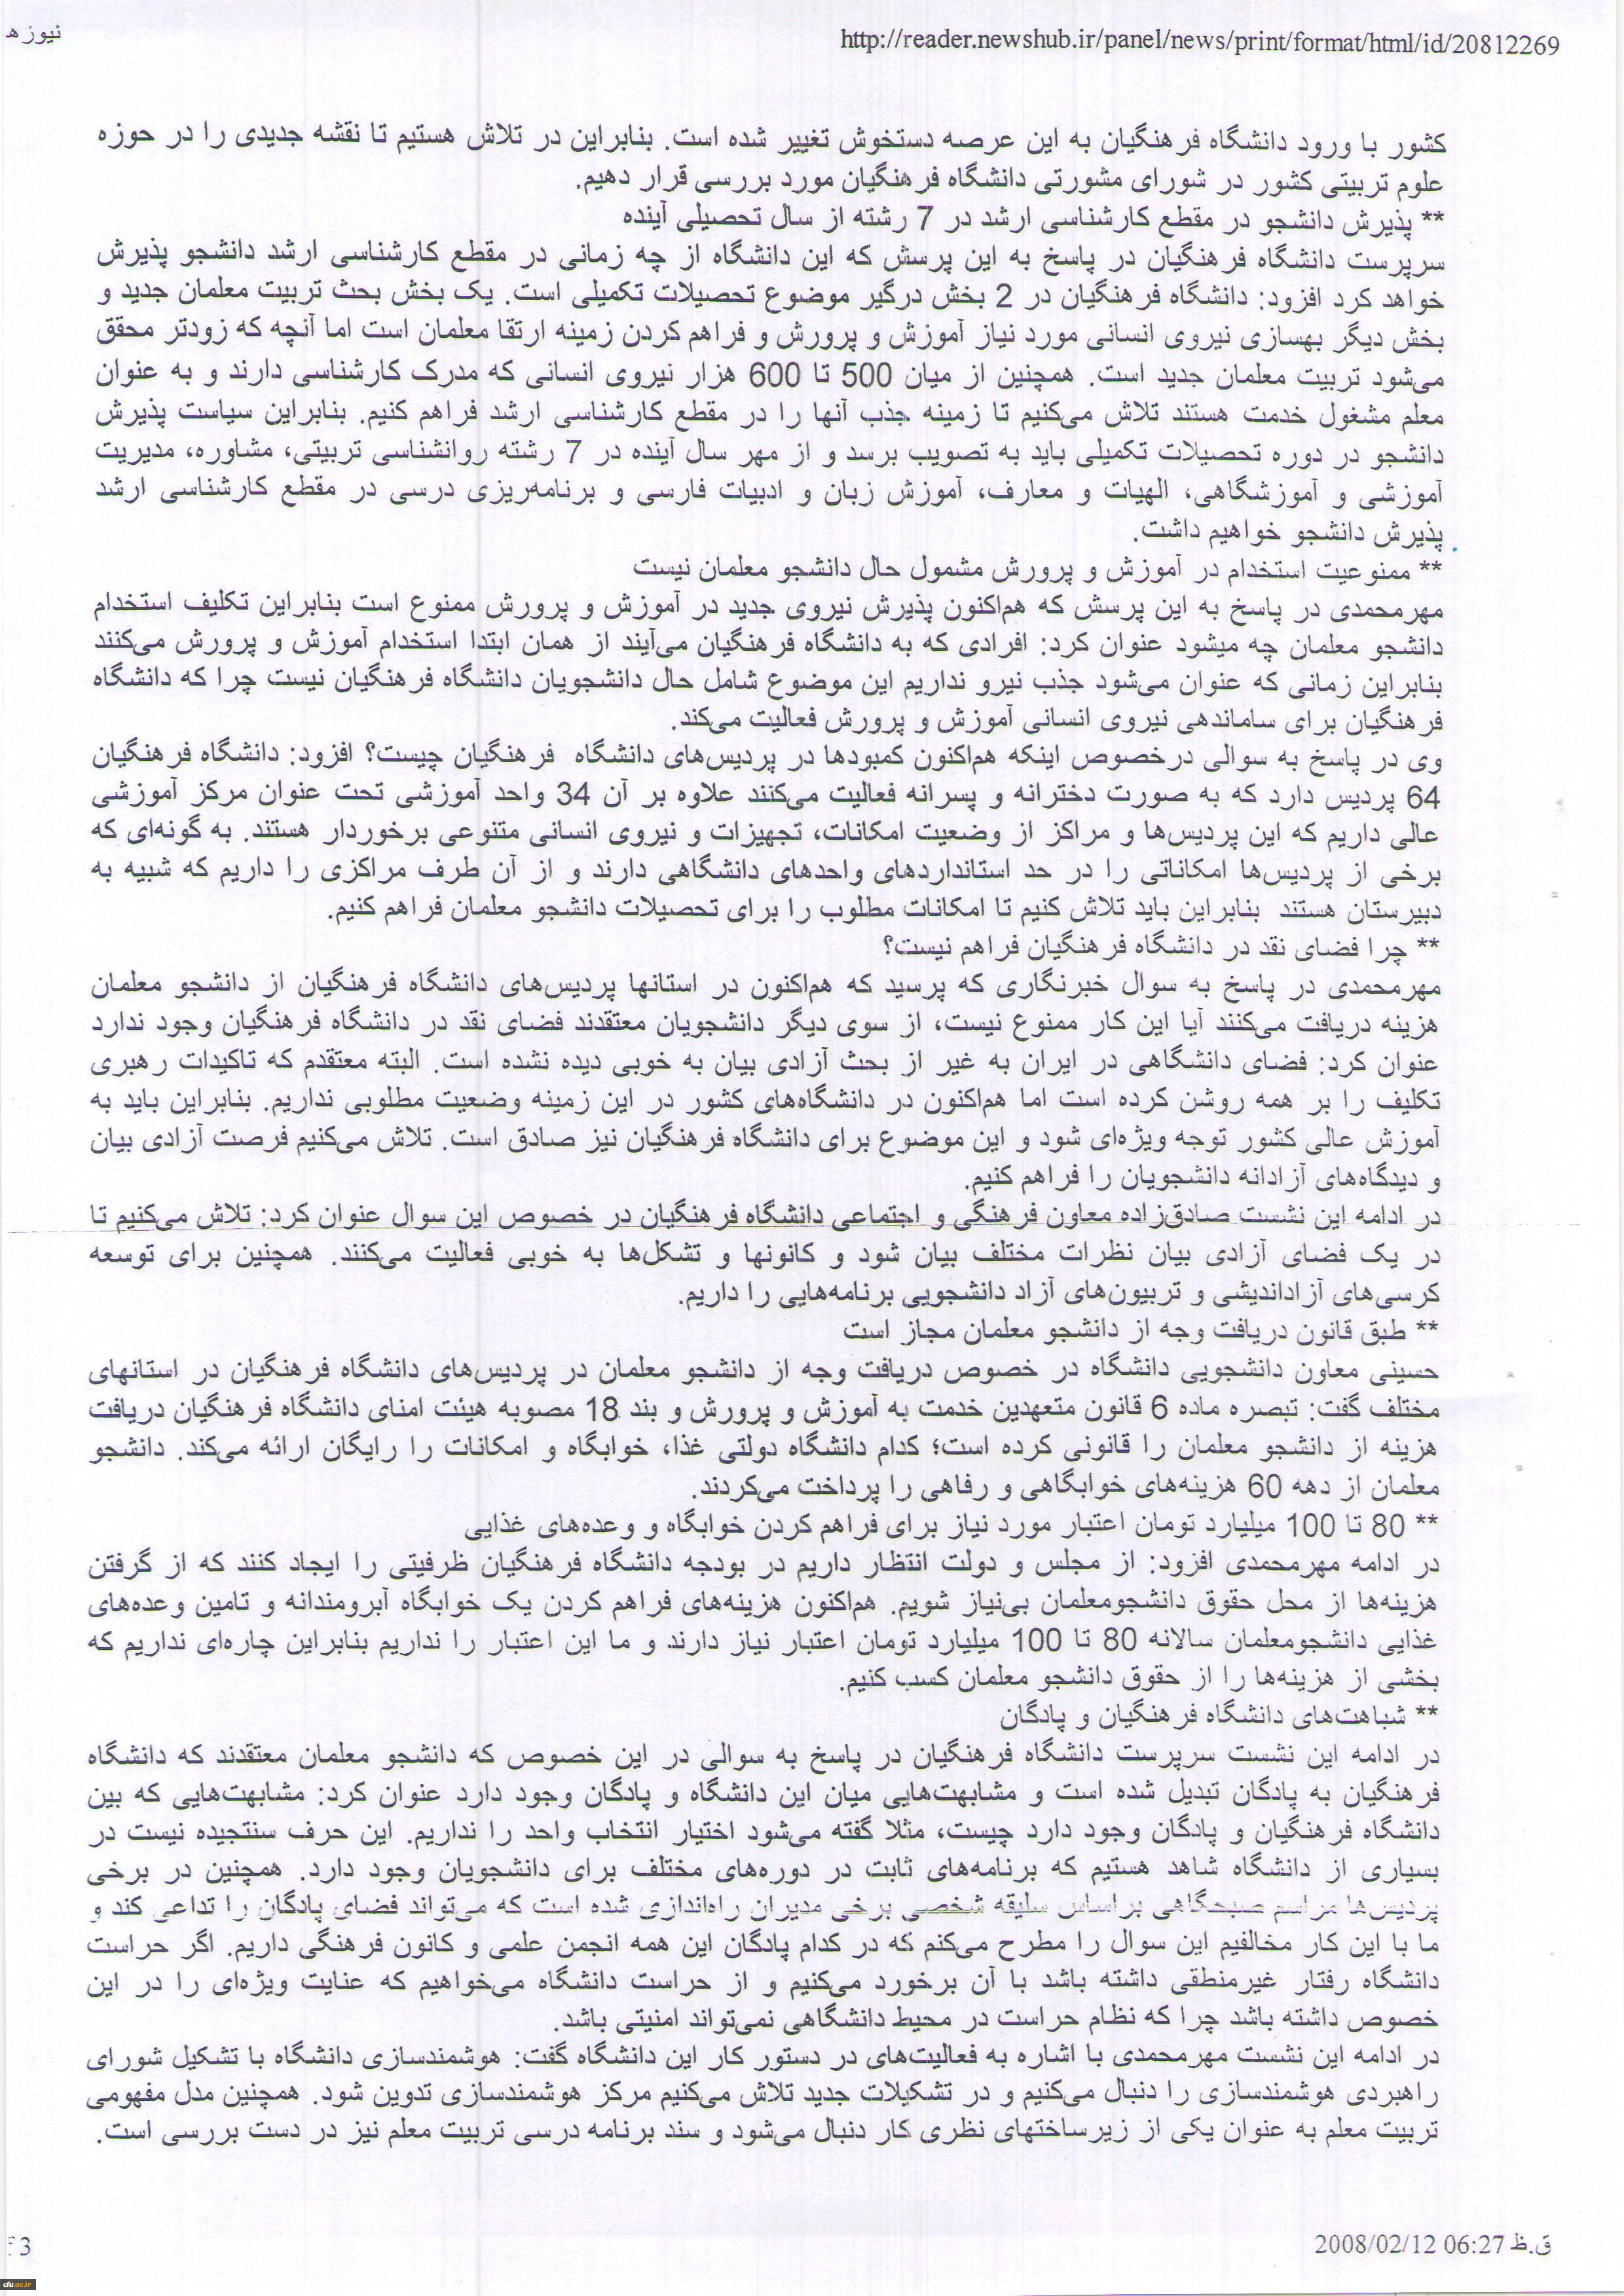 نیوز ه
http://reader.newshub.ir/panel/news/print/format/html/id/20812269
کشور با ورود دانشگاه فرهنگیان به این عرصه دستخوش تغییر شده است. بنابراین در تلاش هستیم تا نقشه جدیدی را در حوزه
علوم تربیتی کشور در شورای مشورتی دانشگاه فرهنگیان مورد بررسی قرار دهیم.
** پذیرش دانشجو در مقطع کارشناسی ارشد در 7 رشته از سال تحصیلی آینده
سرپرست دانشگاه فرهنگیان در پاسخ به این پرسش که این دانشگاه از چه زمانی در مقطع کارشناسی ارشد دانشجو پذیرش
خواهد کرد افزود: دانشگاه فرهنگیان در 2 بخش درگیر موضوع تحصیلات تکمیلی است. یک بخش بحث تربیت معلمان جدید و
بخش دیگر بهسازی نیروی انسانی مورد نیاز آموزش و پرورش و فراهم کردن زمینه ارتقا معلمان است اما آنچه که زودتر محقق
می‌شود تربیت معلمان جدید است. همچنین از میان 500 تا 600 هزار نیروی انسانی که مدرک کارشناسی دارند و به عنوان
معلم مشغول خدمت هستند تلاش می‌کنیم تا زمینه جذب آنها را در مقطع کارشناسی ارشد فراهم کنیم. بنابراین سیاست پذیرش
دانشجو در دوره تحصیلات تکمیلی باید به تصویب برسد و از مهر سال آینده در 7 رشته روانشناسی تربیتی، مشاوره، مدیریت
آموزشی و آموزشگاهی، الهیات و معارف، آموزش زبان و ادبیات فارسی و برنامه‌ریزی درسی در مقطع کارشناسی ارشد
پذیرش دانشجو خواهیم داشت.
** ممنوعیت استخدام در آموزش و پرورش مشمول حال دانشجو معلمان نیست
مهرمحمدی در پاسخ به این پرسش که هم‌اکنون پذیرش نیروی جدید در آموزش و پرورش ممنوع است بنابراین تکلیف استخدام
دانشجو معلمان چه میشود عنوان کرد: افرادی که به دانشگاه فرهنگیان می‌آیند از همان ابتدا استخدام آموزش و پرورش می‌کنند
بنابراین زمانی که عنوان می‌شود جذب نیرو نداریم این موضوع شامل حال دانشجویان دانشگاه فرهنگیان نیست چرا که دانشگاه
فرهنگیان برای ساماندهی نیروی انسانی آموزش و پرورش فعالیت می‌کند.
وی در پاسخ به سوالی درخصوص اینکه هم‌اکنون کمبودها در پردیس‌های دانشگاه فرهنگیان چیست؟ افزود: دانشگاه فرهنگیان
64 پردیس دارد که به صورت دخترانه و پسرانه فعالیت می‌کنند علاوه بر آن 34 واحد آموزشی تحت عنوان مرکز آموزشی
عالی داریم که این پردیس‌ها و مراکز از وضعیت امکانات، تجهیزات و نیروی انسانی متنوعی برخوردار هستند. به گونه‌ای که
برخی از پردیس‌ها امکاناتی را در حد استانداردهای واحدهای دانشگاهی دارند و از آن طرف مراکزی را داریم که شبیه به
دبیرستان هستند بنابراین باید تلاش کنیم تا امکانات مطلوب را برای تحصیلات دانشجو معلمان فراهم کنیم.
** چرا فضای نقد در دانشگاه فرهنگیان فراهم نیست؟
مهرمحمدی در پاسخ به سوال خبرنگاری که پرسید که هم‌اکنون در استانها پردیس‌های دانشگاه فرهنگیان از دانشجو معلمان
هزینه دریافت می‌کنند آیا این کار ممنوع نیست، از سوی دیگر دانشجویان معتقدند فضای نقد در دانشگاه فرهنگیان وجود ندارد
عنوان کرد: فضای دانشگاهی در ایران به غیر از بحث آزادی بیان به خوبی دیده نشده است. البته معتقدم که تاکیدات رهبری
تکلیف را بر همه روشن کرده است اما هم‌اکنون در دانشگاه‌های کشور در این زمینه وضعیت مطلوبی نداریم. بنابراین باید به
آموزش عالی کشور توجه ویژه‌ای شود و این موضوع برای دانشگاه فرهنگیان نیز صادق است. تلاش می‌کنیم فرصت آزادی بیان
و دیدگاه‌های آزادانه دانشجویان را فراهم کنیم.
در ادامه این نشست صادق‌زاده معاون فرهنگی و اجتماعی دانشگاه فرهنگیان در خصوص این سوال عنوان کرد: تلاش می‌کنیم تا
در یک فضای آزادی بیان نظرات مختلف بیان شود و کانونها و تشکل‌ها به خوبی فعالیت می‌کنند. همچنین برای توسعه
کرسی‌های آزاداندیشی و تربیون‌های آزاد دانشجویی برنامه‌هایی را داریم.
** طبق قانون دریافت وجه از دانشجو معلمان مجاز است
حسینی معاون دانشجویی دانشگاه در خصوص دریافت وجه از دانشجو معلمان در پردیس‌های دانشگاه فرهنگیان در استانهای
مختلف گفت: تبصره ماده 6 قانون متعهدین خدمت به آموزش و پرورش و بند 18 مصوبه هیئت امنای دانشگاه فرهنگیان دریافت
هزینه از دانشجو معلمان را قانونی کرده است؛ کدام دانشگاه دولتی غذا، خوابگاه و امکانات را رایگان ارائه می‌کند. دانشجو
معلمان از دهه 60 هزینه‌های خوابگاهی و رفاهی را پرداخت می‌کردند.
** 80 تا 100 میلیارد تومان اعتبار مورد نیاز برای فراهم کردن خوابگاه و وعده‌های غذایی
در ادامه مهرمحمدی افزود: از مجلس و دولت انتظار داریم در بودجه دانشگاه فرهنگیان ظرفیتی را ایجاد کنند که از گرفتن
هزینه‌ها از محل حقوق دانشجومعلمان بی‌نیاز شویم. هم‌اکنون هزینه‌های فراهم کردن یک خوابگاه آبرومندانه و تامین وعده‌های
غذایی دانشجومعلمان سالانه 80 تا 100 میلیارد تومان اعتبار نیاز دارند و ما این اعتبار را نداریم بنابراین چاره‌ای نداریم که
بخشی از هزینه‌ها را از حقوق دانشجو معلمان کسب کنیم.
** شباهت‌های دانشگاه فرهنگیان و پادگان
در ادامه این نشست سرپرست دانشگاه فرهنگیان در پاسخ به سوالی در این خصوص که دانشجو معلمان معتقدند که دانشگاه
فرهنگیان به پادگان تبدیل شده است و مشابهت‌هایی میان این دانشگاه و پادگان وجود دارد عنوان کرد: مشابهت‌هایی که بین
دانشگاه فرهنگیان و پادگان وجود دارد چیست، مثلا گفته می‌شود اختیار انتخاب واحد را نداریم. این حرف سنتجیده نیست در
بسیاری از دانشگاه شاهد هستیم که برنامه‌های ثابت در دوره‌های مختلف برای دانشجویان وجود دارد. همچنین در برخی
پردیس‌ها مراسم صبحگاهی براساس سلیقه شخصی برخی مدیران راه‌اندازی شده است که می‌تواند فضای پادگان را تداعی کند و
ما با این کار مخالفیم این سوال را مطرح می‌کنم که در کدام پادگان این همه انجمن علمی و کانون فرهنگی داریم. اگر حراست
دانشگاه رفتار غیرمنطقی داشته باشد با آن برخورد می‌کنیم و از حراست دانشگاه می‌خواهیم که عنایت ویژه‌ای را در این
خصوص داشته باشد چرا که نظام حراست در محیط دانشگاهی نمی‌تواند امنیتی باشد.
در ادامه این نشست مهرمحمدی با اشاره به فعالیت‌های در دستور کار این دانشگاه گفت: هوشمندسازی دانشگاه با تشکیل شورای
راهبردی هوشمندسازی را دنبال می‌کنیم و در تشکیلات جدید تلاش می‌کنیم مرکز هوشمندسازی تدوین شود. همچنین مدل مفهومی
تربیت معلم به عنوان یکی از زیرساختهای نظری کار دنبال می‌شود و سند برنامه درسی تربیت معلم نیز در دست بررسی است.
3
2008/02/12 06:27 ق.ظ
cfu.ac.ir